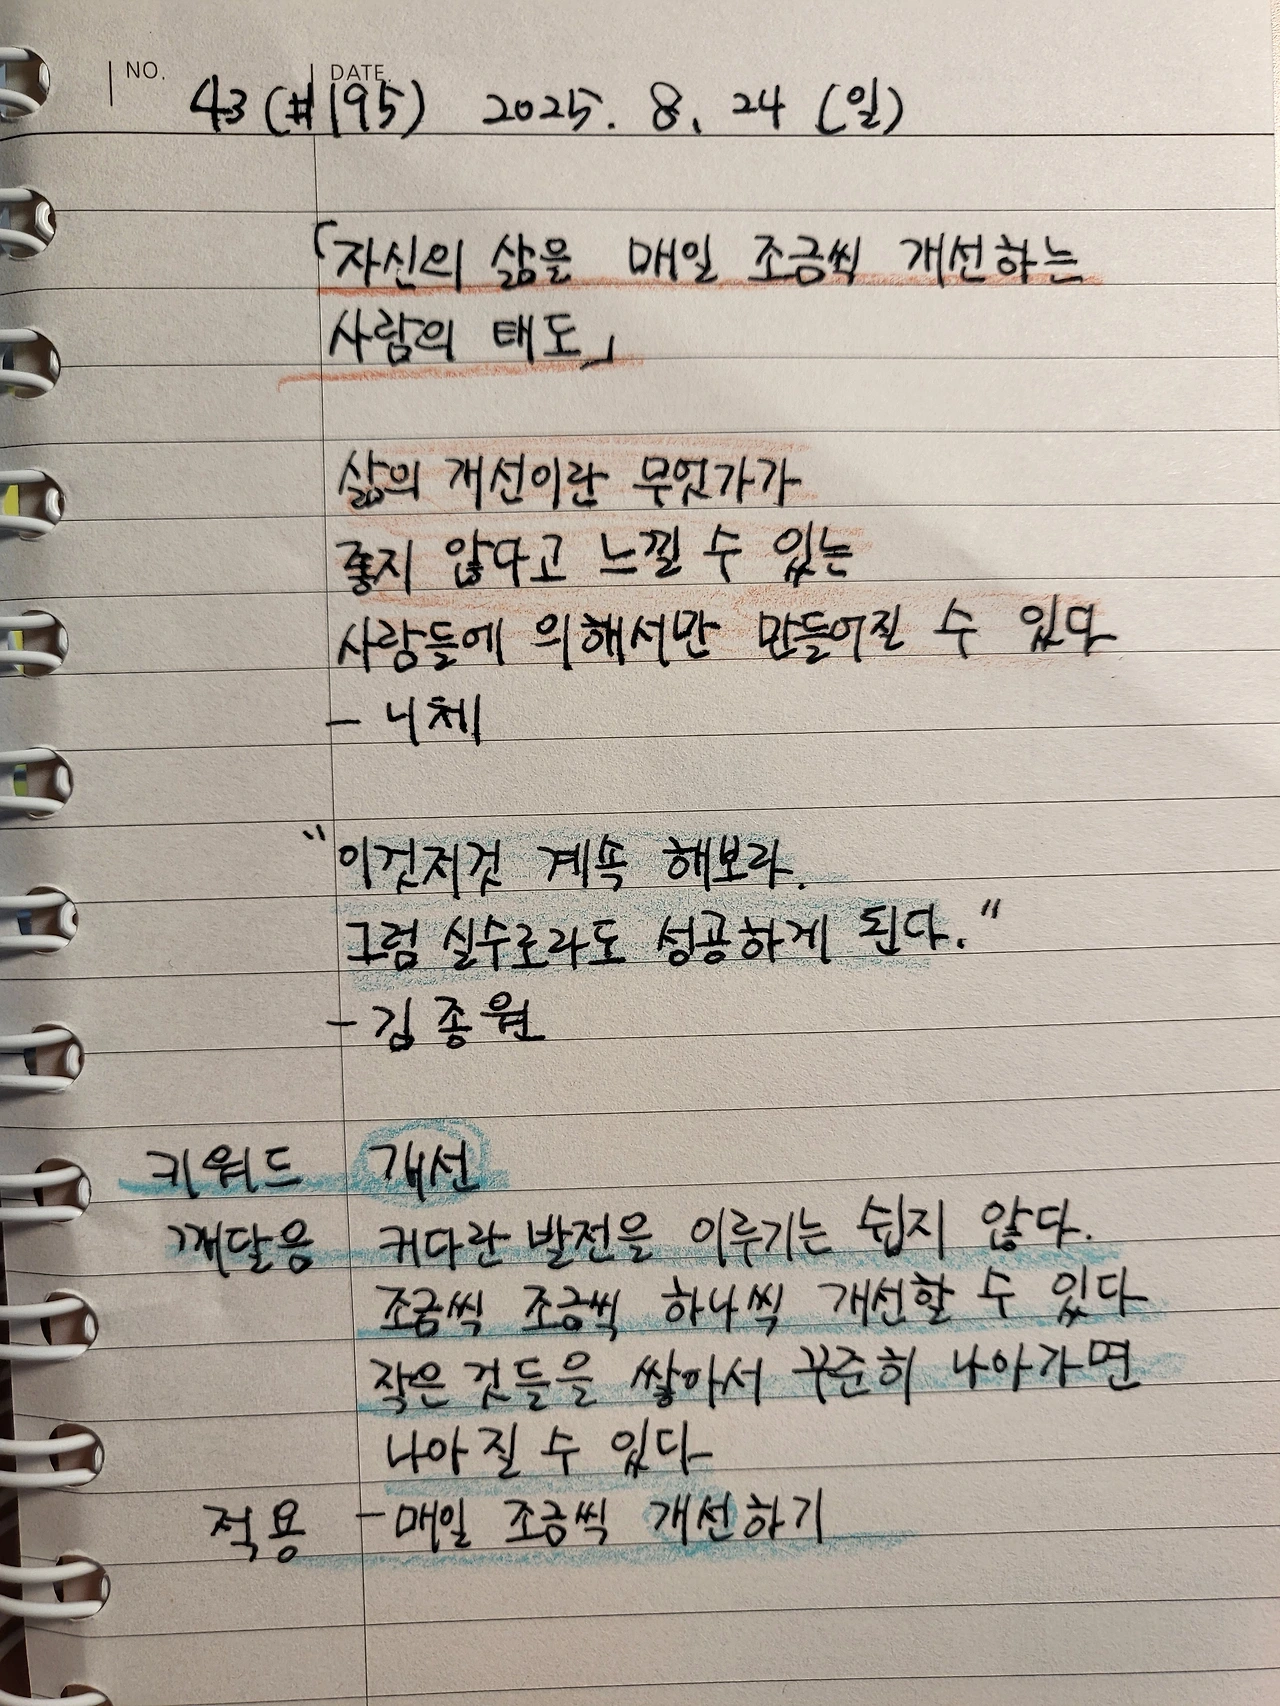 NO. DATE
43 (#195) 2025. 8. 24 (일)
「자신의 삶을 매일 조금씩 개선하는
사람의 태도」
삶의 개선이란 무엇가가
좋지 않다고 느낄 수 있는
사람들에 의해서만 만들어질 수 있다
- 니체
"이것저것 계속 해보라.
그럼 실수로라도 성공하게 된다."
- 김종원
키워드 개선
깨달음 커다란 발전을 이루기는 쉽지 않다.
조금씩 조금씩 하나씩 개선할 수 있다
작은 것들을 쌓아서 꾸준히 나아가면
나아질 수 있다
적용 - 매일 조금씩 개선하기